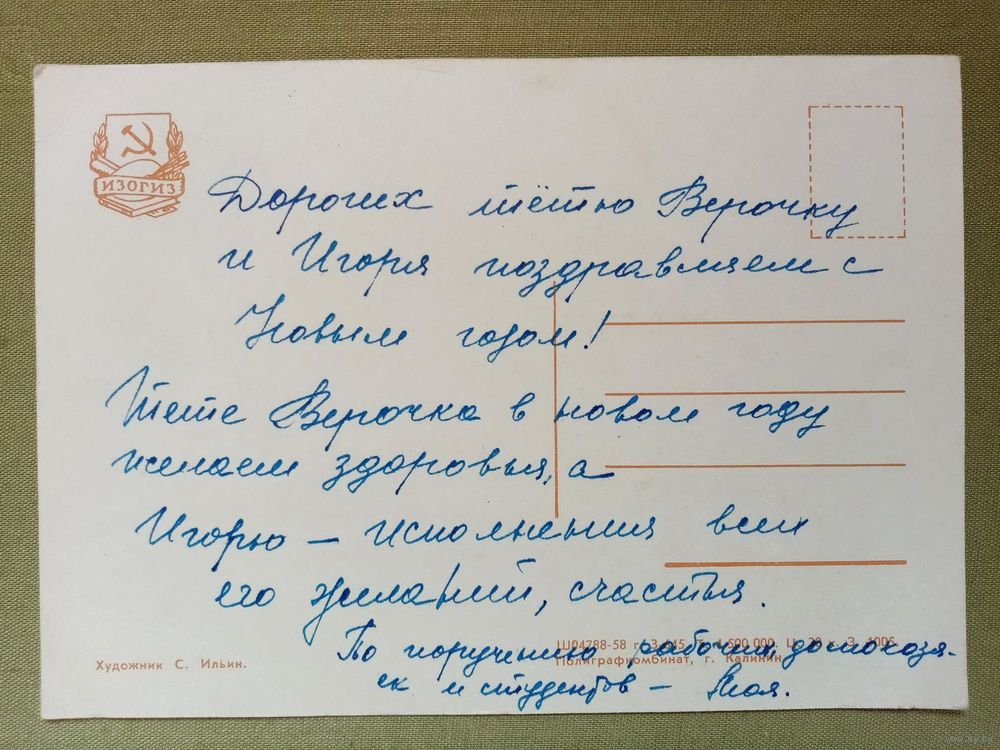 ИЗОГИЗ
Дорогих тётю Верочку
и Игоря поздравляем с
Новым годом!
Тёте Верочке в новом году
желаем здоровья, а
Игорю — исполнения всех
его желаний, счастья.
По поручению рабочих, домохозя-
ек и студентов —
Художник С. Ильин.
Ш04788-58 г. Т. 1.500.000. Ц. З. 1005
Полиграфкомбинат, г. Калинин